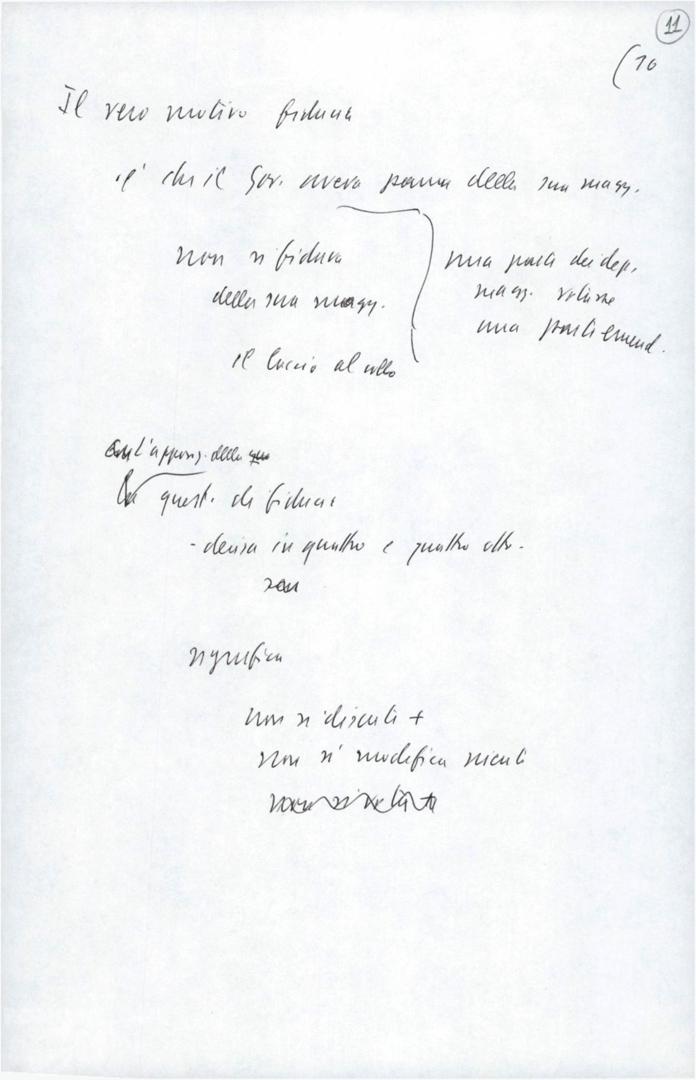 11
(10
Il vero motivo fiducia
è che il Gov. aveva paura della sua magg.
non si fidava
della sua magg.
il laccio al collo
una parte dei dep.
magg. votasse
una parte emend.
Con l'appos. della
La quest. di fiducia
- decisa in quattro e quattro otto -
significa
non si discute +
non si modifica niente